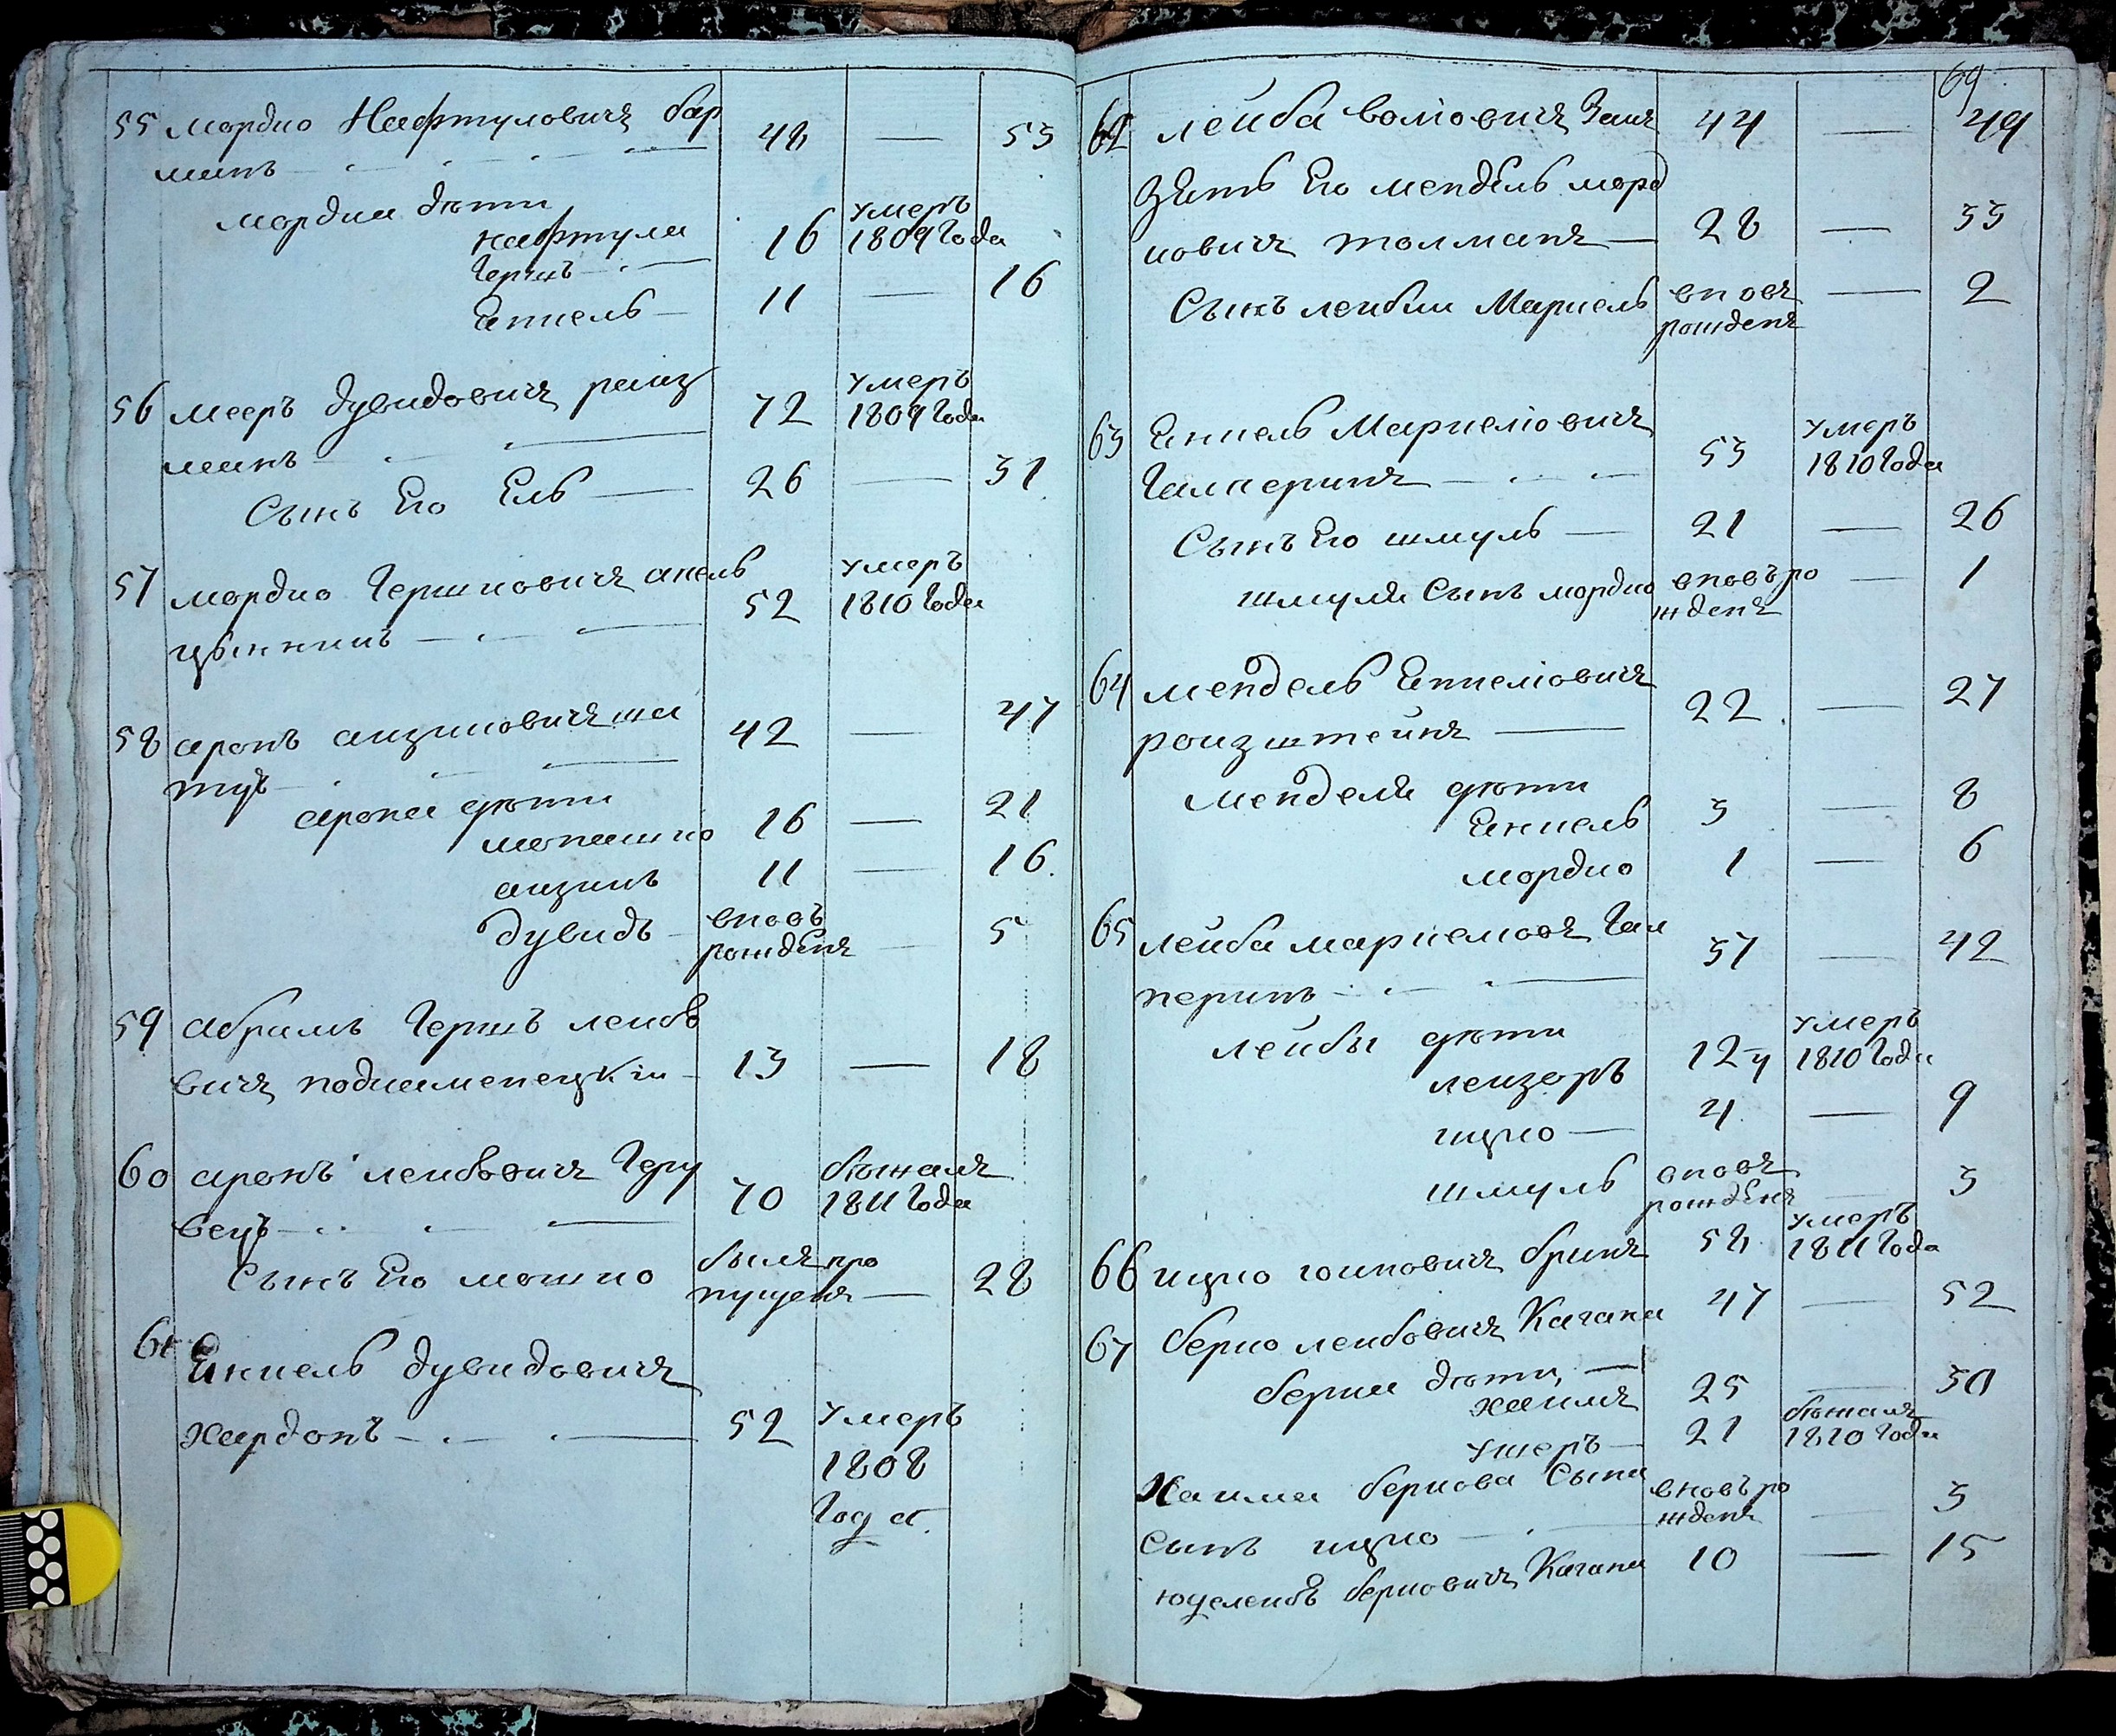 55 Мордко Нафтуловичъ бар 48 — 53
манъ
Мордки дѣти
Нафтула 16 умеръ 1809 Года
Гершъ
Янкель 11 — 16
56 Мееръ дувидовичъ 72 умеръ 1809 Года
Сынъ Его Ель 26 — 31
57 Мордко Гершковичъ 52 умеръ 1810 Года
58 аронъ аизиковичъ ша 42 — 47
арона дѣти
монашко 16 — 21
аизикъ 11 — 16
дувидъ вновъ рожденъ — 5
59 абрамъ Гершъ леибо
вичъ подкаменецкiи 13 — 18
60 аронъ леибовичъ Гуру 70 бѣжалъ 1811 Года
вецъ
Сынъ Его мошко былъ про пущенъ — 28
61 Янкель дувидовичъ
хардонъ 52 умеръ
1808
Года
69
62 леиба волковичъ 44 — 49
Зять Его мендель морд
ковичъ толманъ 28 — 33
Сынъ леибы Маркель вновъ рожденъ — 2
63 Янкель Маркеловичъ
Галперинъ 53 умеръ 1810 Года
Сынъ Его шмуль 21 — 26
шмуля Сынъ мордко вновъ ро жденъ — 1
64 мендель Янкеловичъ 22 — 27
роизштейнъ
Менделя дѣти
Янкель 3 — 8
мордко 1 — 6
65 леиба маркеловъ Гал 37 — 42
перинъ
леибы дѣти
леизоръ 12 умеръ 1810 Года
ицко 4 — 9
шмуль вновъ рожденъ — 3
66 ицко iоиновичъ бринъ 58 умеръ 1811 Года
67 берко леибовичъ Кагана 47 — 52
берки дѣти
хаимъ 25 — 30
ушеръ 21 бѣжалъ 1810 Года
Хаима беркова Сына вновъ ро жденъ — 3
Сынъ ицко
юделеибъ берковичъ Кагана 10 — 15